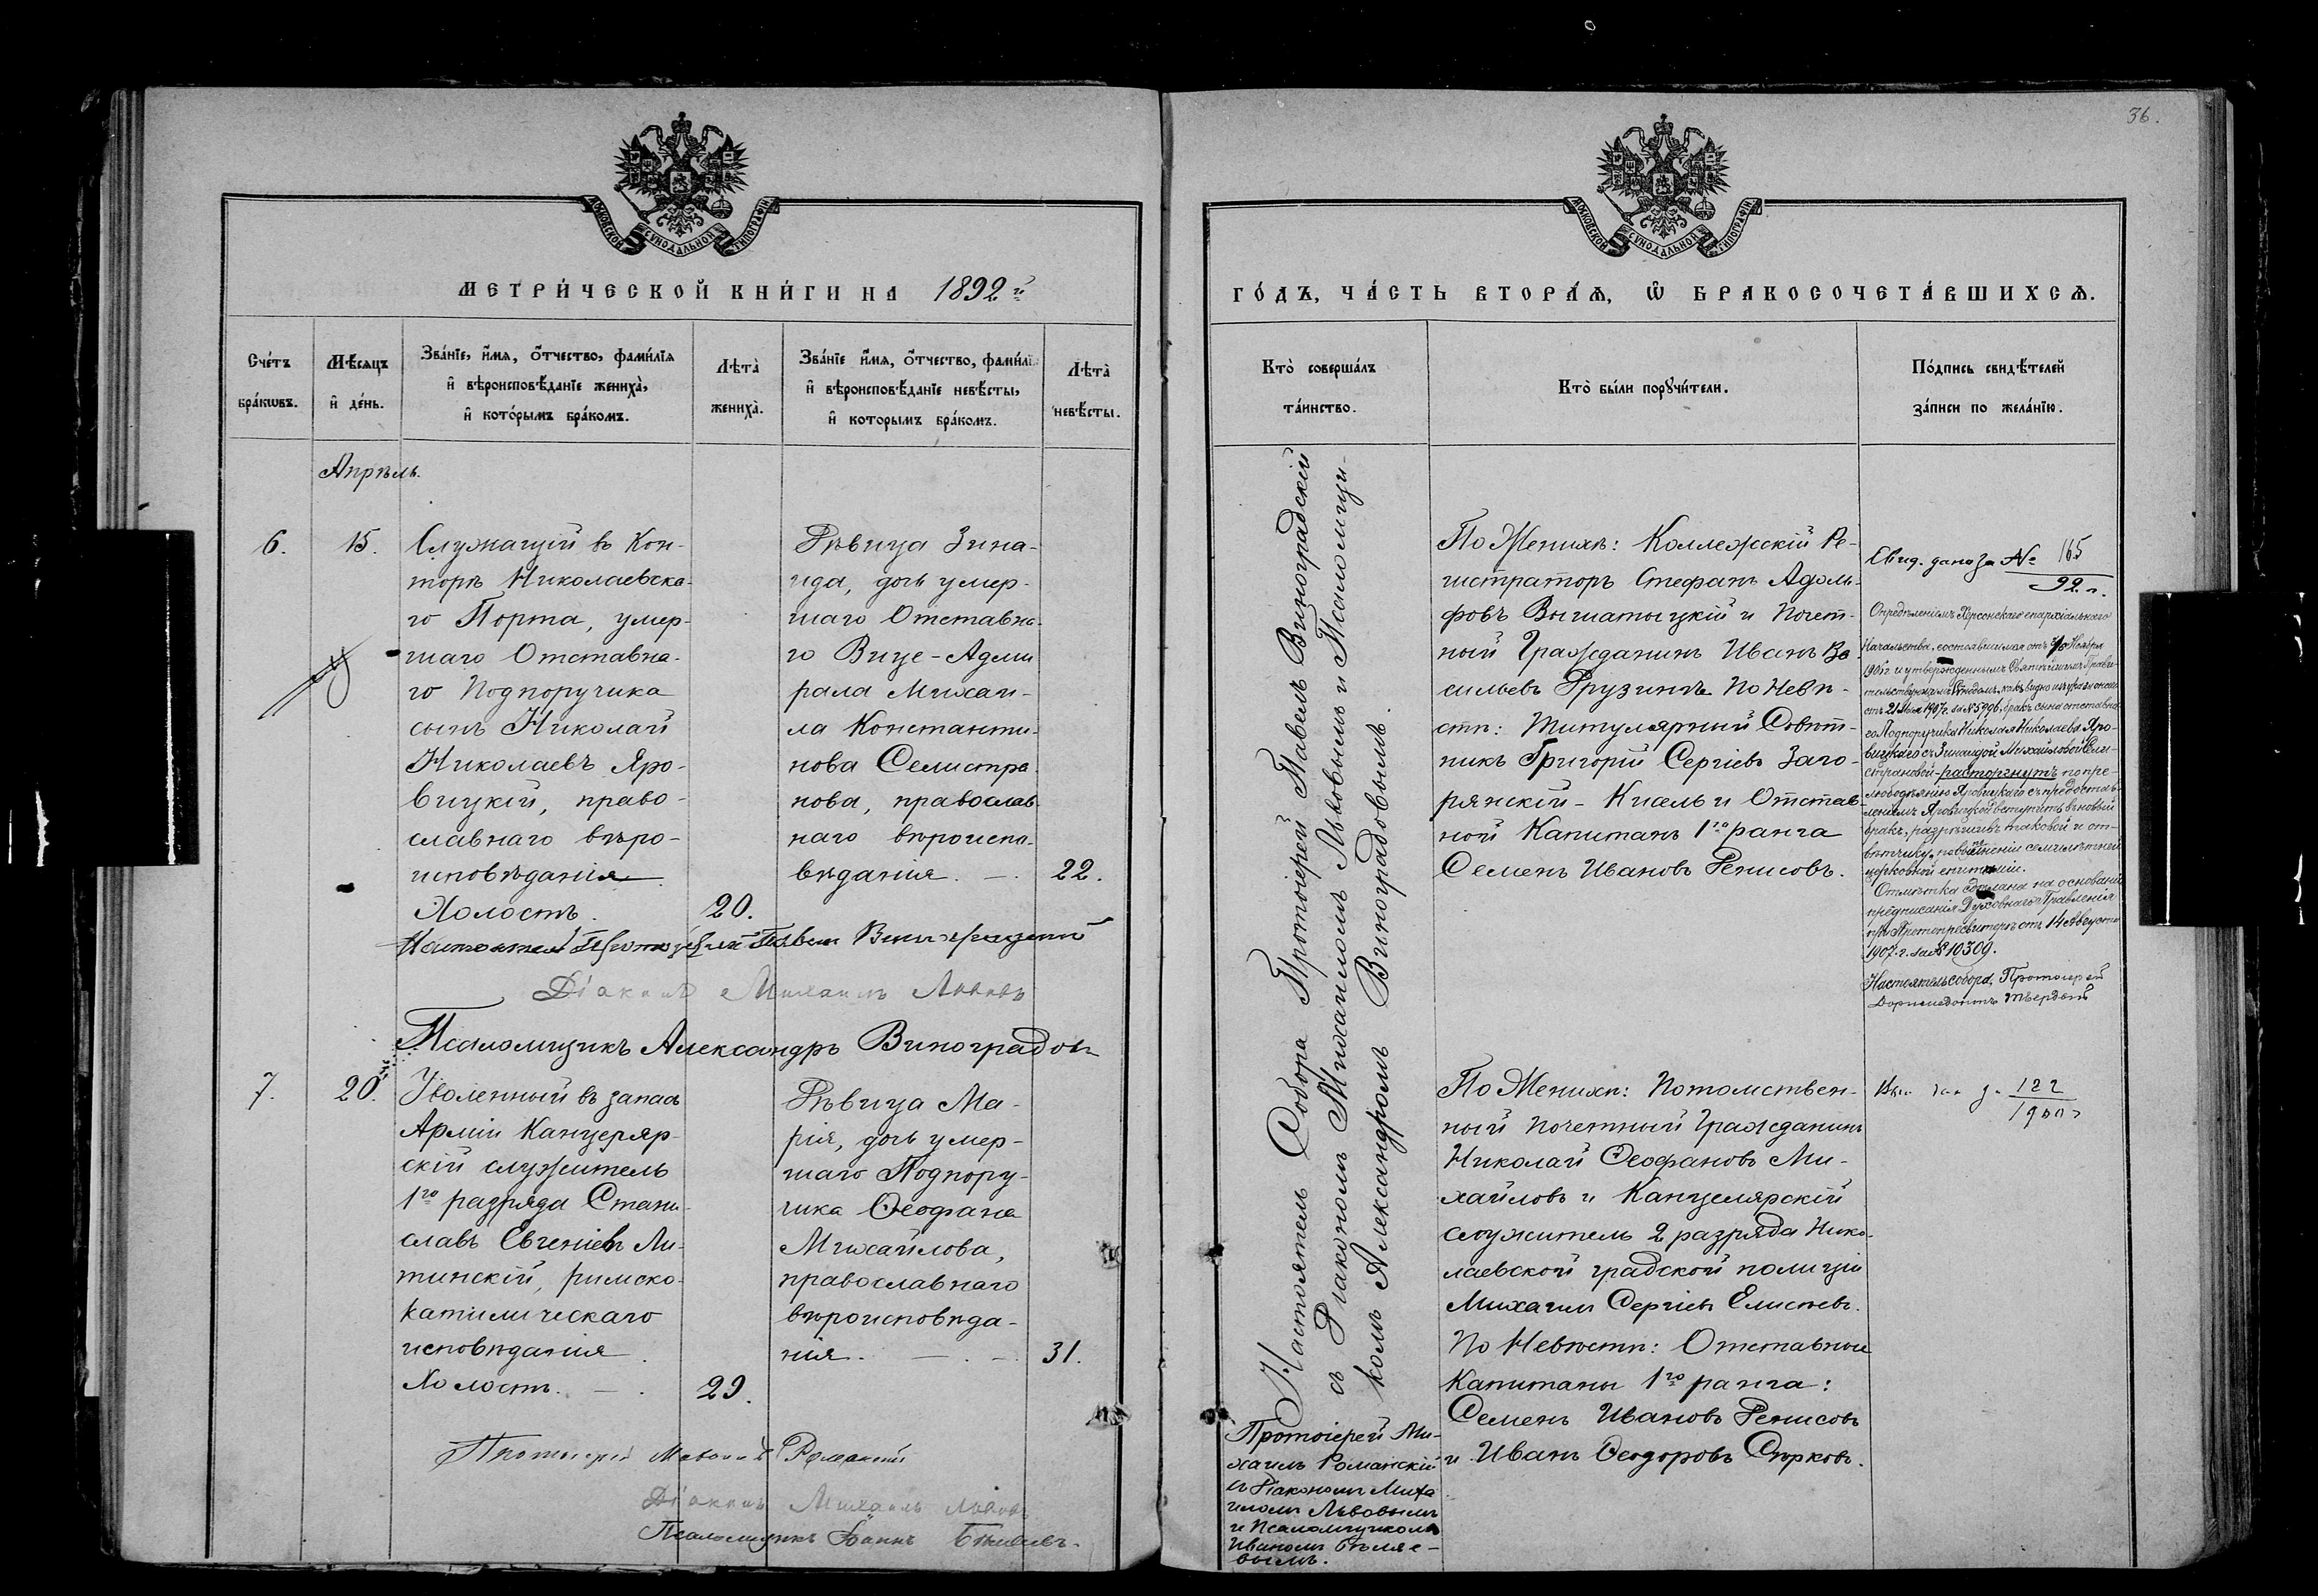 36.
МОСКОВСКОЙ СУНОДАЛЬНОЙ ТИПОГРАФІИ
МЕТРИ́ЧЕСКОЙ КНИ́ГИ НА 1892 й
Сче́тъ
бра́кωвъ.
Мѣ́сяцъ
и҆ де́нь.
Зва́нїе, и҆́мя, ѻ҆́тчество, фами́лїя
и҆ вѣроисповѣ́данїе жениха̀,
и҆ кото́рымъ бра́комъ.
Лѣта̀
жениха̀.
Зва́нїе и҆́мя, ѻ҆́тчество, фами́лї
и҆ вѣроисповѣ́данїе невѣ́сты,
и҆ которымъ бра́комъ.
Лѣта̀
невѣ́сты.
Апрѣль.
6.
15.
Служащій въ Кон-
торѣ Николаевска-
го Порта, умер-
шаго Отставна-
го Подпоручика
сынъ Николай
Николаевъ Яро-
вицкій, право-
славнаго вѣро-
исповѣданія
Холостъ.
20.
Дѣвица Зина-
ида, дочь умер-
шаго Отставна-
го Вице-Адми
рала Михаи-
ла Константи-
нова Селистра
нова, православ
наго вѣроиспо-
вѣданія. —
22.
Настоятель Протоіерей Павелъ Виноградскій
Діаконъ Михаилъ Львовъ
Псаломщикъ Александръ Виноградовъ
7.
20.
Уволенный въ запасъ
Арміи Канцеляр-
скій служитель
1го разряда Стани-
славъ Евгеніевъ Ли-
тинскій, римско-
католическаго
исповѣданія.
Холостъ. —.
29.
Дѣвица Ма-
рія, дочь умер-
шаго Подпору-
чика Ѳеофана
Михайлова,
православнаго
вѣроисповѣда-
нія. —. —.
31.
Протоіерей Михаилъ Романскій
Діаконъ Михаилъ Львовъ
Псаломщикъ Іоаннъ Бѣляевъ.
МОСКОВСКОЙ СУНОДАЛЬНОЙ ТИПОГРАФІИ
ГО́ДЪ, ЧА́СТЬ ВТОРА́Я, Ѽ БРАКОСОЧЕТА́ВШИХСЯ.
Кто̀ соверша́лъ
та́инство.
Кто̀ бы́ли порꙋчи́тели.
По́дпись свидѣ́телей
за́писи по жела́нїю.
Настоятель Собора Протоіерей Павелъ Виноградскій
съ Діакономъ Михаиломъ Львовымъ и Псаломщи-
комъ Александромъ Виноградовымъ.
По Женихѣ: Коллежскій Ре-
гистраторъ Стефанъ Адоль-
фовъ Вышатыцкій и Почет-
ный Гражданинъ Иванъ Ва
сильевъ Грузинъ. По Невѣ-
стѣ: Титулярный Совѣт-
никъ Григорій Сергіевъ Заго-
рянскій-Кисель и Отстав-
ной Капитанъ 1го ранга
Семенъ Ивановъ Денисовъ.
Свид. дано за № 165
92 г.
Опредѣленіемъ Херсонскаго епархіальнаго
Начальства, состоявшимся отъ Ноября
1906 г. и утвержденнымъ Святѣйшимъ Прави-
тельствующимъ Сѵнодомъ, какъ видно изъ указа онаго
отъ 21 Мая 1907 г. за № 5996, бракъ сына отставна-
го Подпоручика Николая Николаева Яро-
вицкаго съ Зинаидой Михайловой Сели-
страновой - расторгнутъ по пре-
любодѣянію Яровицкаго съ предостав-
леніемъ Яровицкой вступить въ новый
бракъ, разрѣшивъ таковой и от-
вѣтчику, по выполненіи семилѣтней
церковной епитиміи.
Отмѣтка сдѣлана на основаніи
предписанія Духовнаго Правленія
при Протопресвитерѣ отъ 14 Августа
1907 г. за № 10309.
Настоятель собора, Протоіерей
По Женихѣ: Потомствен-
ный Почетный Гражданинъ
Николай Ѳеофановъ Ми-
хайловъ и Канцелярскій
служитель 2 разряда Нико-
лаевской градской полиціи
Михаилъ Сергіевъ Елисѣевъ.
По Невѣстѣ: Отставные
Капитаны 1го ранга:
Семенъ Ивановъ Денисовъ
и Иванъ Ѳеодоровъ Сюрковъ.
122
1900 г
Протоіерей Ми-
хаилъ Романскій
съ Діакономъ Миха
иломъ Львовымъ
и Псаломщикомъ
Иваномъ Бѣляе-
вымъ.